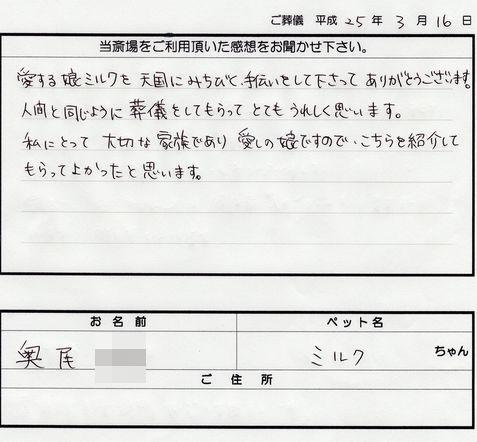 ご葬儀 平成 25 年 3 月 16 日
当斎場をご利用頂いた感想をお聞かせ下さい。
愛する娘ミルクを 天国にみちびく、手伝いをして下さって ありがとうございます。
人間と同じように 葬儀をしてもらって とても うれしく思います。
私にとって 大切な家族であり 愛しの娘ですので、こちらを紹介して
もらってよかったと思います。
お名前 ペット名
奥尾 ミルク ちゃん
ご住所